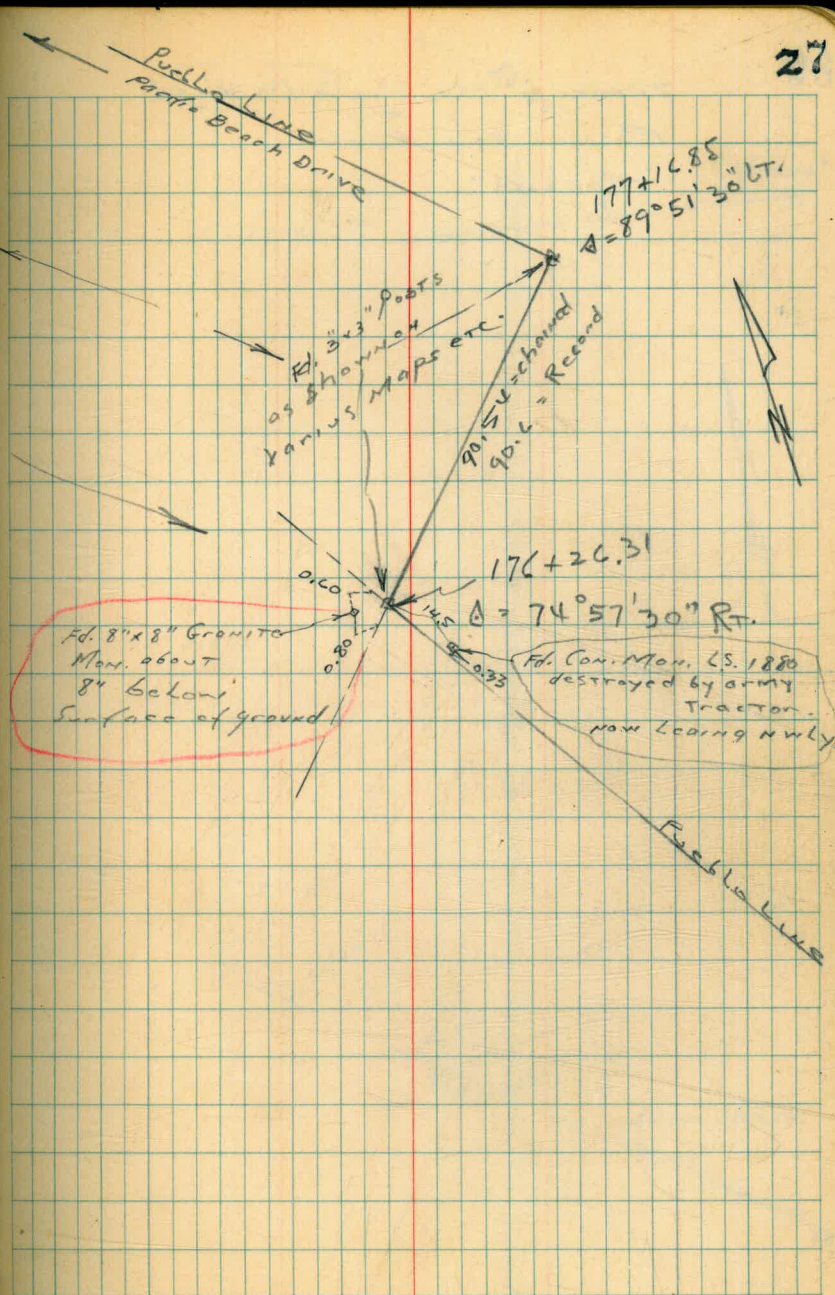 27
Pueblo Line
Pacific Beach Drive
177+16.85
Δ = 89°51'30" LT.
Fd. 3"x3" Posts
as shown on
varius Maps etc.
90.54 = chained
90.6 = Record
176+26.31
Δ = 74°57'30" RT.
0.60
0.80
14.5
0.33
Fd. 8"x8" Granite
Mon. about
8" below
Surface of ground
Fd. Con. Mon. L.S. 1880
destroyed by army
Tractor.
now Leaning nwly
Pueblo Line